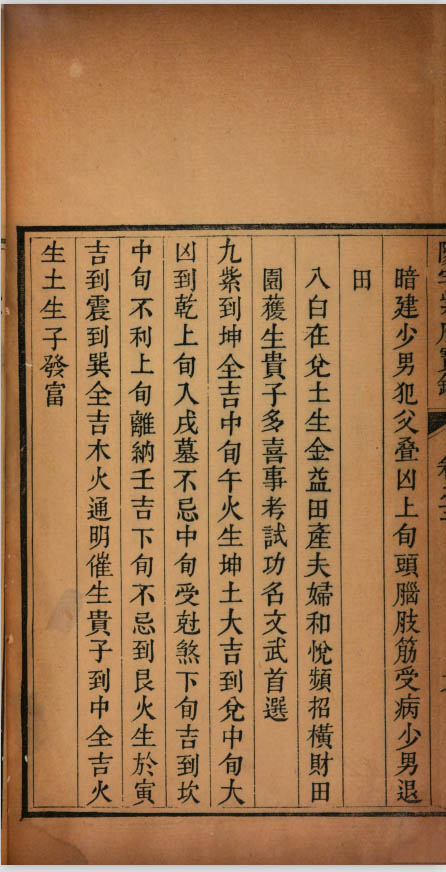 暗建少男犯父叠凶上旬頭腦肢筋受病少男退
田
八白在兌土生金益田產夫婦和悅頻招橫財田
園穫生貴子多喜事考試功名文武首選
九紫到坤全吉中旬午火生坤土大吉到兌中旬大
凶到乾上旬入戌墓不忌中旬受尅煞下旬吉到坎
中旬不利上旬離納壬吉下旬不忌到艮火生於寅
吉到震到巽全吉木火通明催生貴子到中全吉火
生土生子發富